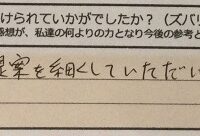 けられていかがでしたか？（ズバリ
感想が、私達の何よりの力となり今後の参考と
提案を細くしていただい